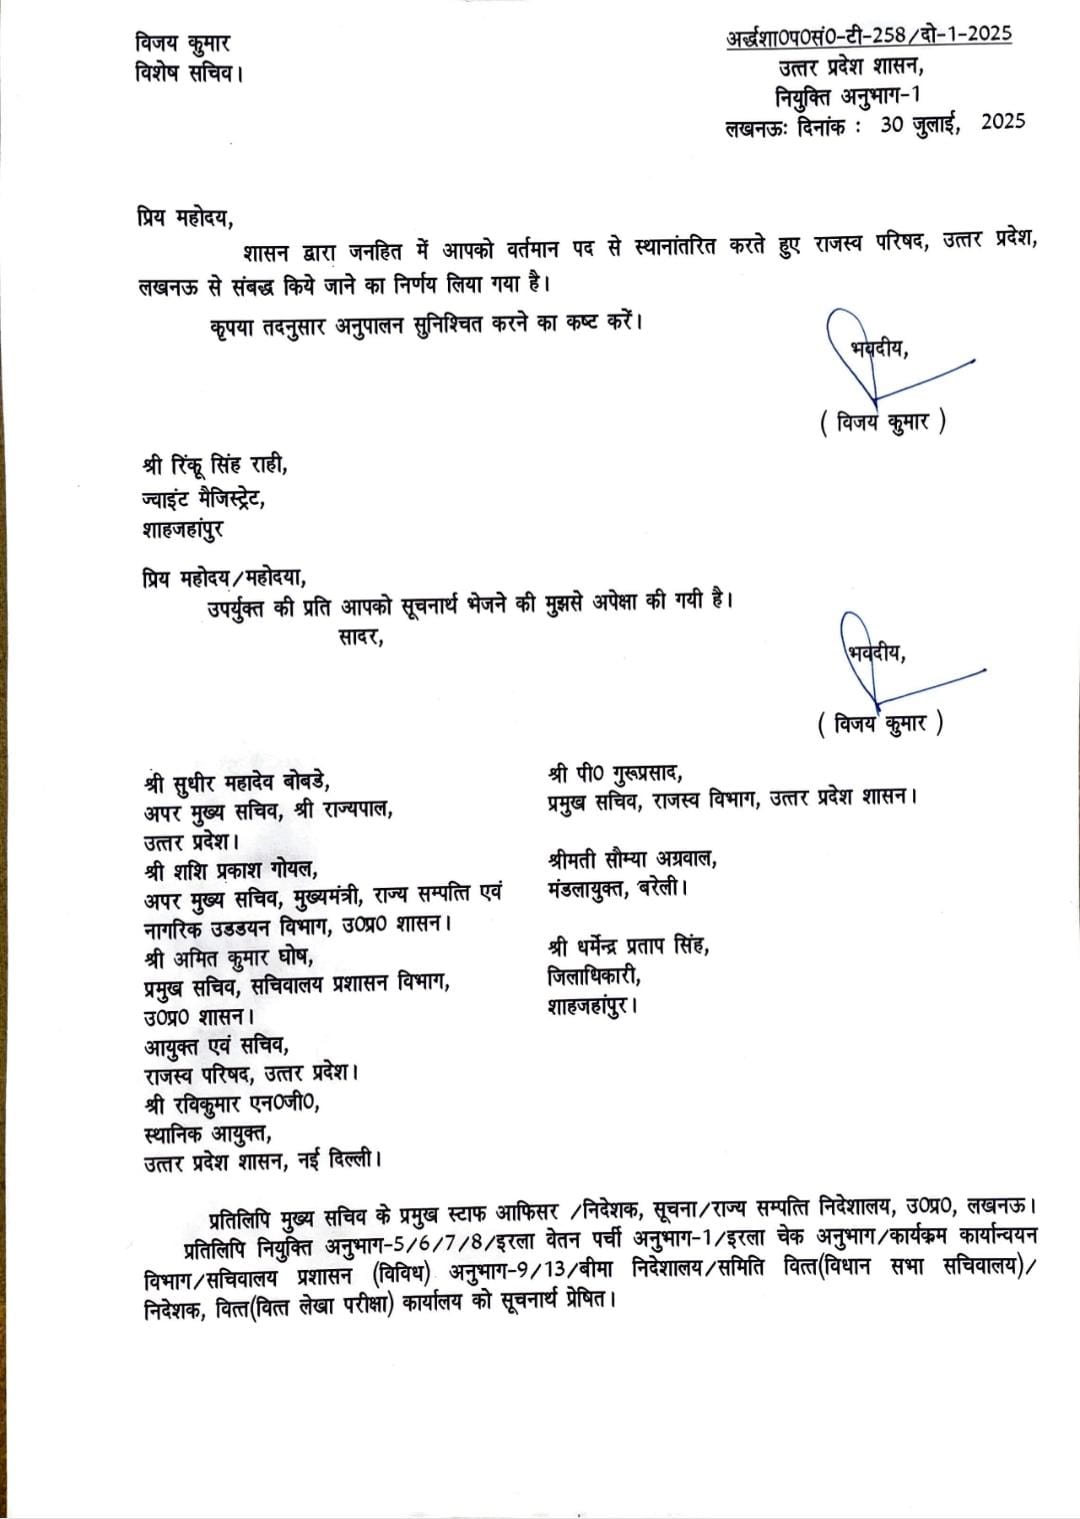 विजय कुमार
विशेष सचिव।
अर्द्धशा0प0सं0-टी-258/दो-1-2025
उत्तर प्रदेश शासन,
नियुक्ति अनुभाग-1
लखनऊः दिनांक : 30 जुलाई, 2025
प्रिय महोदय,
शासन द्वारा जनहित में आपको वर्तमान पद से स्थानांतरित करते हुए राजस्व परिषद, उत्तर प्रदेश,
लखनऊ से संबद्ध किये जाने का निर्णय लिया गया है।
कृपया तदनुसार अनुपालन सुनिश्चित करने का कष्ट करें।
भवदीय,
( विजय कुमार )
श्री रिंकू सिंह राही,
ज्वाइंट मैजिस्ट्रेट,
शाहजहांपुर
प्रिय महोदय/महोदया,
उपर्युक्त की प्रति आपको सूचनार्थ भेजने की मुझसे अपेक्षा की गयी है।
सादर,
भवदीय,
( विजय कुमार )
श्री सुधीर महादेव बोबडे,
अपर मुख्य सचिव, श्री राज्यपाल,
उत्तर प्रदेश।
श्री शशि प्रकाश गोयल,
अपर मुख्य सचिव, मुख्यमंत्री, राज्य सम्पत्ति एवं
नागरिक उडडयन विभाग, उ0प्र0 शासन।
श्री अमित कुमार घोष,
प्रमुख सचिव, सचिवालय प्रशासन विभाग,
उ0प्र0 शासन।
आयुक्त एवं सचिव,
राजस्व परिषद, उत्तर प्रदेश।
श्री रविकुमार एन0जी0,
स्थानिक आयुक्त,
उत्तर प्रदेश शासन, नई दिल्ली।
श्री पी0 गुरूप्रसाद,
प्रमुख सचिव, राजस्व विभाग, उत्तर प्रदेश शासन।
श्रीमती सौम्या अग्रवाल,
मंडलायुक्त, बरेली।
श्री धर्मेन्द्र प्रताप सिंह,
जिलाधिकारी,
शाहजहांपुर।
प्रतिलिपि मुख्य सचिव के प्रमुख स्टाफ आफिसर /निदेशक, सूचना/राज्य सम्पत्ति निदेशालय, उ0प्र0, लखनऊ।
प्रतिलिपि नियुक्ति अनुभाग-5/6/7/8/इरला वेतन पर्ची अनुभाग-1/इरला चेक अनुभाग/कार्यक्रम कार्यान्वयन
विभाग/सचिवालय प्रशासन (विविध) अनुभाग-9/13/बीमा निदेशालय/समिति वित्त(विधान सभा सचिवालय)/
निदेशक, वित्त(वित्त लेखा परीक्षा) कार्यालय को सूचनार्थ प्रेषित।